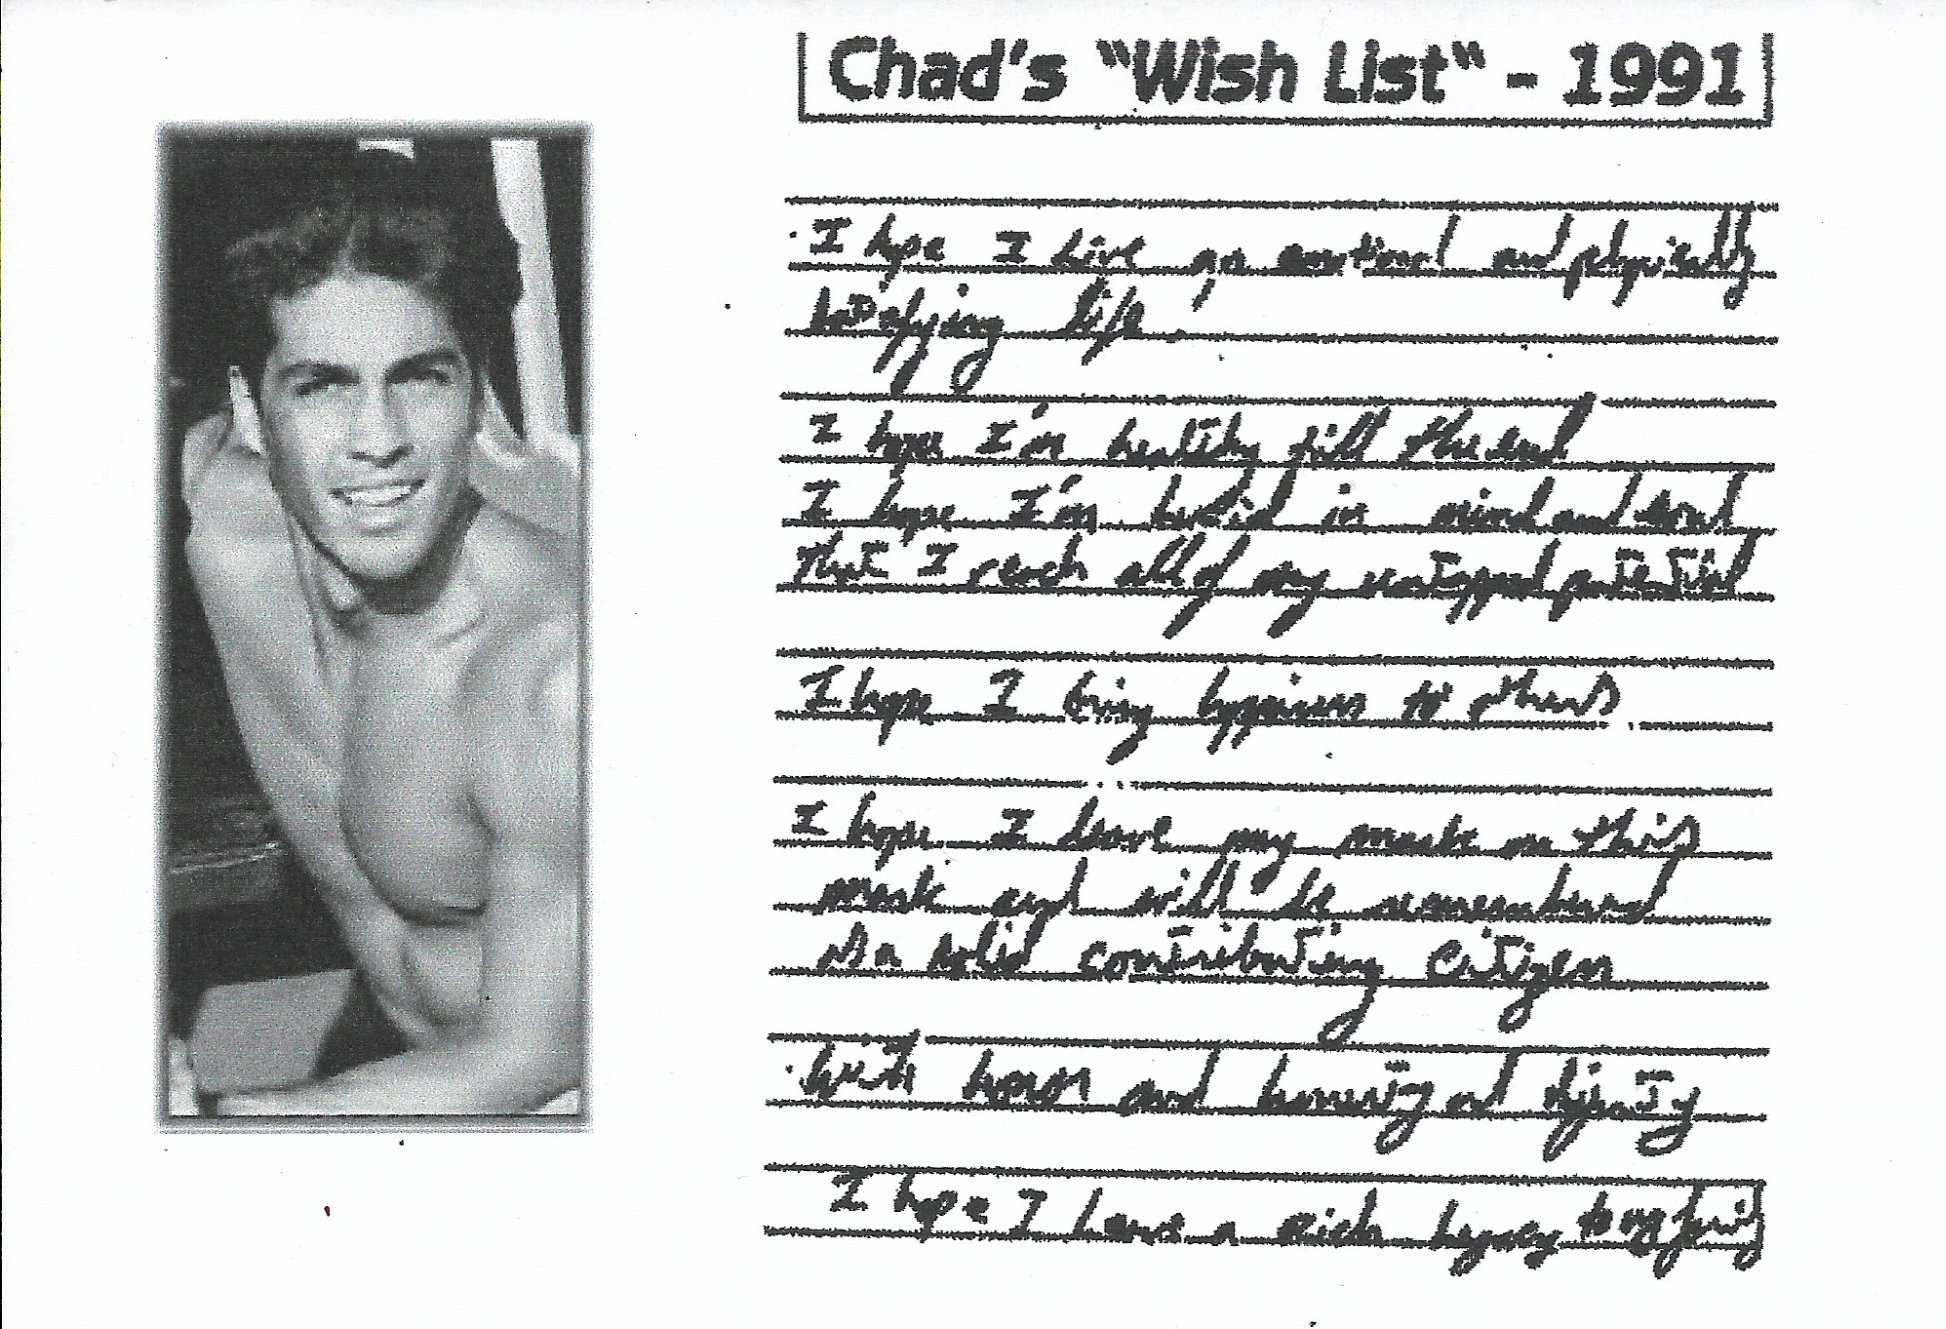 Chad's "Wish List" - 1991
I hope I live an emotional and physically
life.
I hope I'm healthy till the end
I hope I'm in mind and soul
that I reach all of my untapped potential
I hope I bring happiness to others.
I hope I leave my mark on this
mark and will be remembered
as a solid contributing citizen
with honor and and dignity
I hope I leave a rich legacy to my family